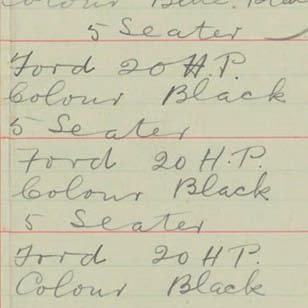 Colour Blue. Black
5 Seater
Ford 20 H.P.
Colour Black
5 Seater
Ford 20 H.P.
Colour Black
5 Seater
Ford 20 H.P.
Colour Black